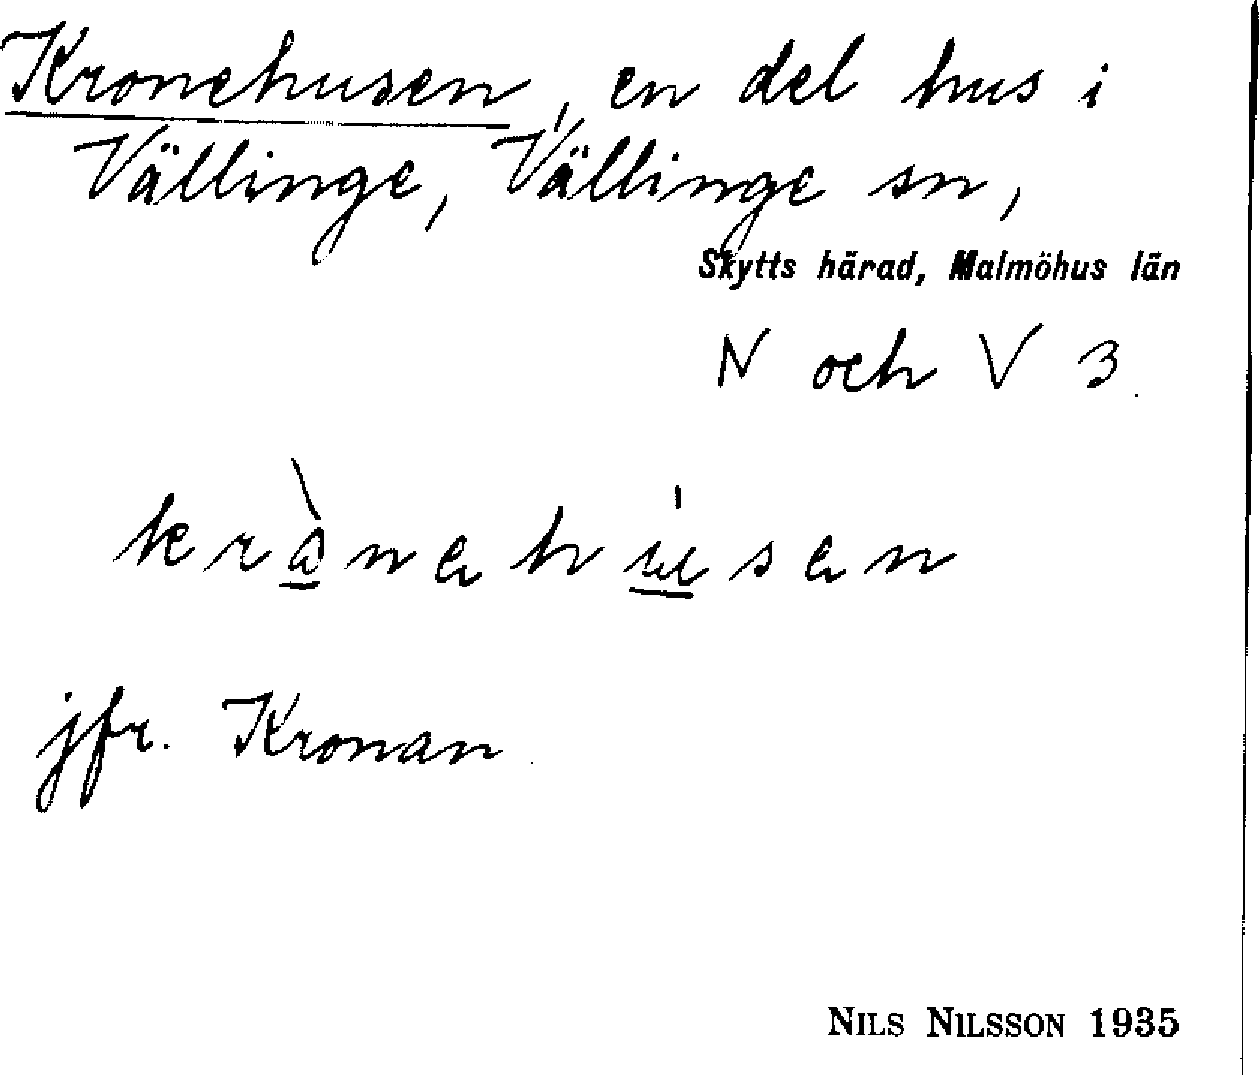 Kronehusen, en del hus i
Vällinge, Vällinge sn,
Skytts härad, Malmöhus län
N och V 3.
krånehúsen
jfr. Kronan
NILS NILSSON 1935